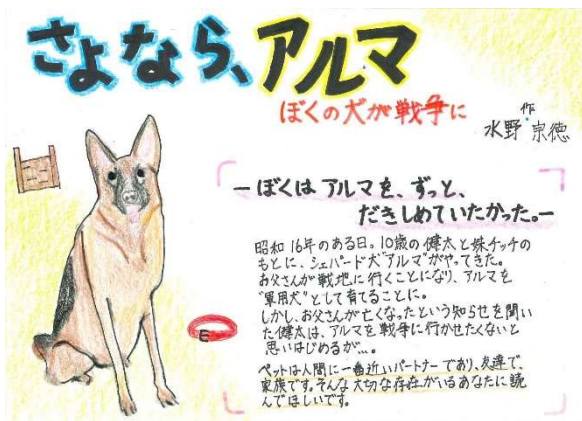 さよなら、アルマ
ぼくの犬が戦争に
作
水野 宗徳
―ぼくは アルマを、ずっと、
だきしめていたかった。―
昭和16年のある日。10歳の健太と妹チッチの
もとに、シェパード犬"アルマ"がやってきた。
お父さんが戦地に行くことになり、アルマを
"軍用犬"として育てることに。
しかし、お父さんが亡くなったという知らせを聞い
た健太は、アルマを戦争に行かせたくないと
思いはじめるが…。
ペットは人間に一番近いパートナーであり、友達で、
家族です。そんな大切な存在がいるあなたに読
んでほしいです。